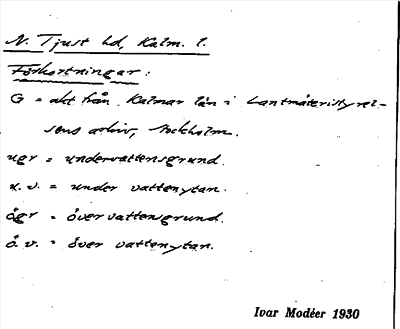 N. Tjust hd, Kalm. l.
Förkortningar:
G = akt från Kalmar län i Lantmäteristyrel-
sens arkiv, Stockholm.
ugr = undervattensgrund.
u.v. = under vattenytan.
ögr = övervattensgrund.
ö.v. = över vattenytan.
Ivar Modéer 1930